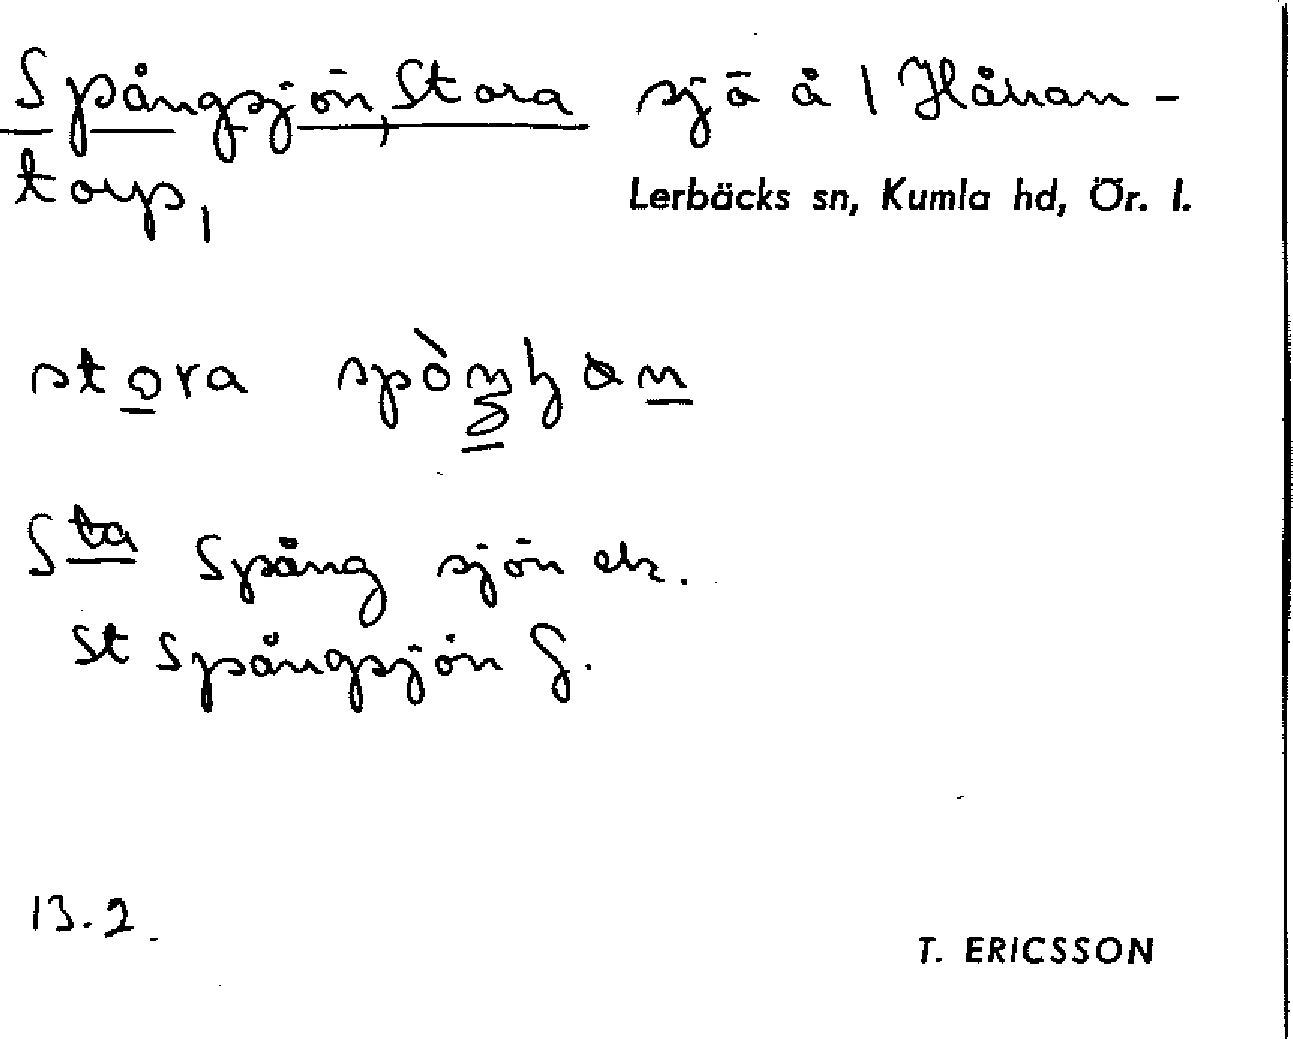 Spångsjön, Stora sjö å 1 Håkan-
torp,
Lerbäcks sn, Kumla hd, Ör. l.
stora
Sta Spång sjön ek.
St Spångsjön G.
13.2
T. ERICSSON